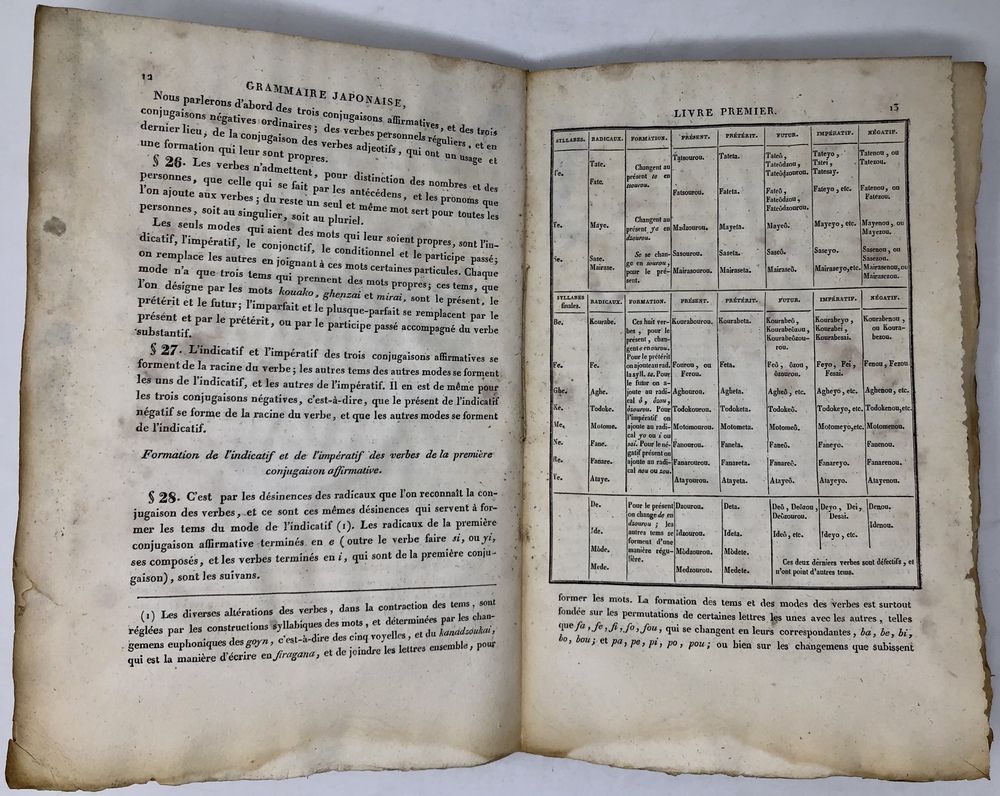 12
GRAMMAIRE JAPONAISE,
Nous parlerons d'abord des trois conjugaisons affirmatives, et des trois
conjugaisons négatives ordinaires; des verbes personnels réguliers, et en
dernier lieu, de la conjugaison des verbes adjectifs, qui ont un usage et
une formation qui leur sont propres.
§ 26. Les verbes n'admettent, pour distinction des nombres et des
personnes, que celle qui se fait par les antécédens, et les pronoms que
l'on ajoute aux verbes; du reste un seul et même mot sert pour toutes les
personnes, soit au singulier, soit au pluriel.
Les seuls modes qui aient des mots qui leur soient propres, sont l'in-
dicatif, l'impératif, le conjonctif, le conditionnel et le participe passé;
on remplace les autres en joignant à ces mots certaines particules. Chaque
mode n'a que trois tems qui prennent des mots propres; ces tems, que
l'on désigne par les mots kouako, ghenzai et mirai, sont le présent, le
prétérit et le futur; l'imparfait et le plusque-parfait se remplacent par le
présent et par le prétérit, ou par le participe passé accompagné du verbe
substantif.
§ 27. L'indicatif et l'impératif des trois conjugaisons affirmatives se
forment de la racine du verbe; les autres tems des autres modes se forment
les uns de l'indicatif, et les autres de l'impératif. Il en est de même pour
les trois conjugaisons négatives, c'est-à-dire, que le présent de l'indicatif
négatif se forme de la racine du verbe, et que les autres modes se forment
de l'indicatif.
Formation de l'indicatif et de l'impératif des verbes de la première
conjugaison affirmative.
§ 28. C'est par les désinences des radicaux que l'on reconnaît la con-
jugaison des verbes, et ce sont ces mêmes désinences qui servent à for-
mer les tems du mode de l'indicatif (1). Les radicaux de la première
conjugaison affirmative terminés en e (outre le verbe faire si, ou yi,
ses composés, et les verbes terminés en i, qui sont de la première conju-
gaison), sont les suivans.
(1) Les diverses altérations des verbes, dans la contraction des tems, sont
réglées par les constructions syllabiques des mots, et déterminées par les chan-
gemens euphoniques des goyn, c'est-à-dire des cinq voyelles, et du kanadzoukai,
qui est la manière d'écrire en firagana, et de joindre les lettres ensemble, pour
LIVRE PREMIER.
13
SYLLABES. RADICAUX. FORMATION. PRÉSENT. PRÉTÉRIT. FUTUR. IMPÉRATIF. NÉGATIF.
Te. Tate. Changent au présent te en tsourou. Tatsourou. Tateta. Tateô, Tateôdzou, Tateôdzourou. Tateyo, Tatei, Tatesay. Tatenou, ou Tatezou.
Fate. Fatsourou. Fateta. Fateô, Fateôdzou, Fateôdzourou. Fateyo, etc. Fatenou, ou Fatezou.
Ye. Maye. Changent au présent ye en dzourou. Madzourou. Mayeta. Mayeô. Mayeyo, etc. Mayenou, ou Mayezou.
Se. Sase. Se se change en sourou, pour le présent. Sasourou. Saseta. Saseô. Saseyo. Sasenou, ou Sasezou.
Mairase. Mairasourou. Mairaseta. Mairaseô. Mairaseyo, etc. Mairasenou, ou Mairasezou.
SYLLABES finales. RADICAUX. FORMATION. PRÉSENT. PRÉTÉRIT. FUTUR. IMPÉRATIF. NÉGATIF.
Ces huit ver-
bes, pour le
présent, chan-
gent e en ourou.
Pour le prétérit
on ajoute au rad.
la syll. ta. Pour
le futur on a-
joute au radi-
cal ô, ôzou,
ôzourou. Pour
l'impératif on
ajoute au radi-
cal yo ou i ou
sai. Pour le né-
gatif présent on
ajoute au radi-
cal nou ou zou.
Be. Kourabe. Kourabourou. Kourabeta. Kourabeô, Kourabeôzou, Kourabeôzou-rou. Kourabeyo, Kourabei, Kourabesai. Kourabenou, ou Koura-bezou.
Fe. Fe. Fourou, ou Ferou. Feta. Feô, ôzou, ôzourou. Feyo, Fei, Fesai. Fenou, Fezou.
Ghe. Aghe. Aghourou. Agheta. Agheô, etc. Agheyo, etc. Aghenou, etc.
Ke. Todoke. Todokourou. Todoketa. Todokeô. Todokeyo, etc. Todokenou, etc.
Me. Motome. Motomourou. Motometa. Motomeô. Motomeyo, etc. Motomenou.
Ne. Fane. Fanourou. Faneta. Faneô. Faneyo. Fanenou.
Re. Fanare. Fanarourou. Fanareta. Fanareô. Fanareyo. Fanarenou.
Ye. Ataye. Atayourou. Atayeta. Atayeô. Atayeyo. Atayenou.
Pour le présent
on change de en
dzourou; les
autres tems se
forment d'une
manière régu-
lière.
De. Dzourou. Deta. Deô, Deôzou, Deôzourou. Deyo, Dei, Desai. Denou.
Ide. Idzourou. Ideta. Ideô, etc. Ideyo, etc. Idenou.
Môde. Môdzourou. Môdete.
Mede. Medzourou. Medete.
Ces deux dérniers verbes sont défectifs, et
n'ont point d'autres tems.
former les mots. La formation des tems et des modes des verbes est surtout
fondée sur les permutations de certaines lettres les unes avec les autres, telles
que fa, fe, fi, fo, fou, qui se changent en leurs correspondantes, ba, be, bi,
bo, bou; et pa, pe, pi, po, pou; ou bien sur les changemens que subissent